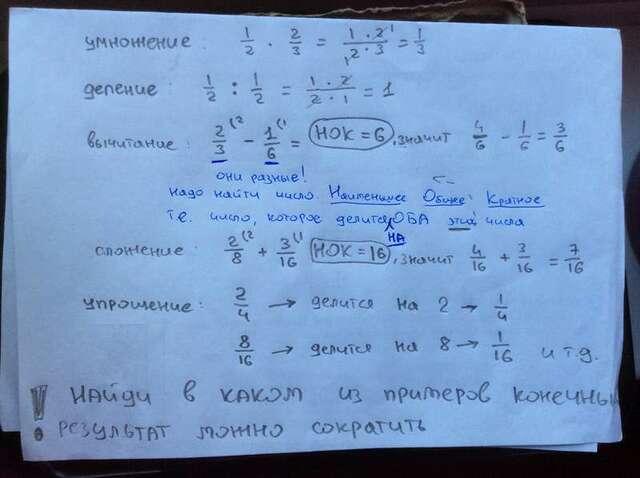 умножение: 1/2 · 2/3 = 1·2/2·3 = 1/3
деление: 1/2 : 1/2 = 1·2/2·1 = 1
вычитание: 2/3 (2 - 1/6 (1 = НОК = 6, значит 4/6 - 1/6 = 3/6
они разные!
надо найти число Наименьшее Общее Кратное
т.е. число, которое делится НА ОБА эти числа
сложение: 2/8 (2 + 3/16 (1 НОК = 16, значит 4/16 + 3/16 = 7/16
упрощение: 2/4 → делится на 2 → 1/4
8/16 → делится на 8 → 1/16 и т.д.
! НАЙДИ В КАКОМ ИЗ ПРИМЕРОВ КОНЕЧНЫ
РЕЗУЛЬТАТ МОЖНО СОКРАТИТЬ